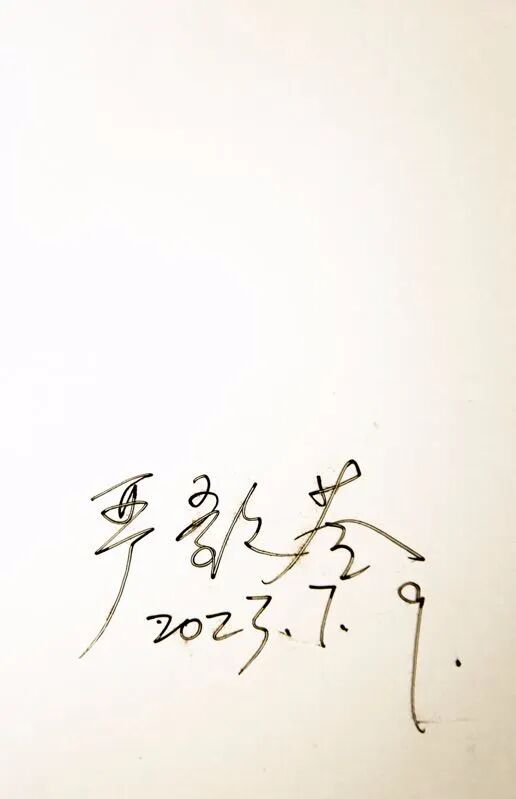 严歌苓
2023.7.9.